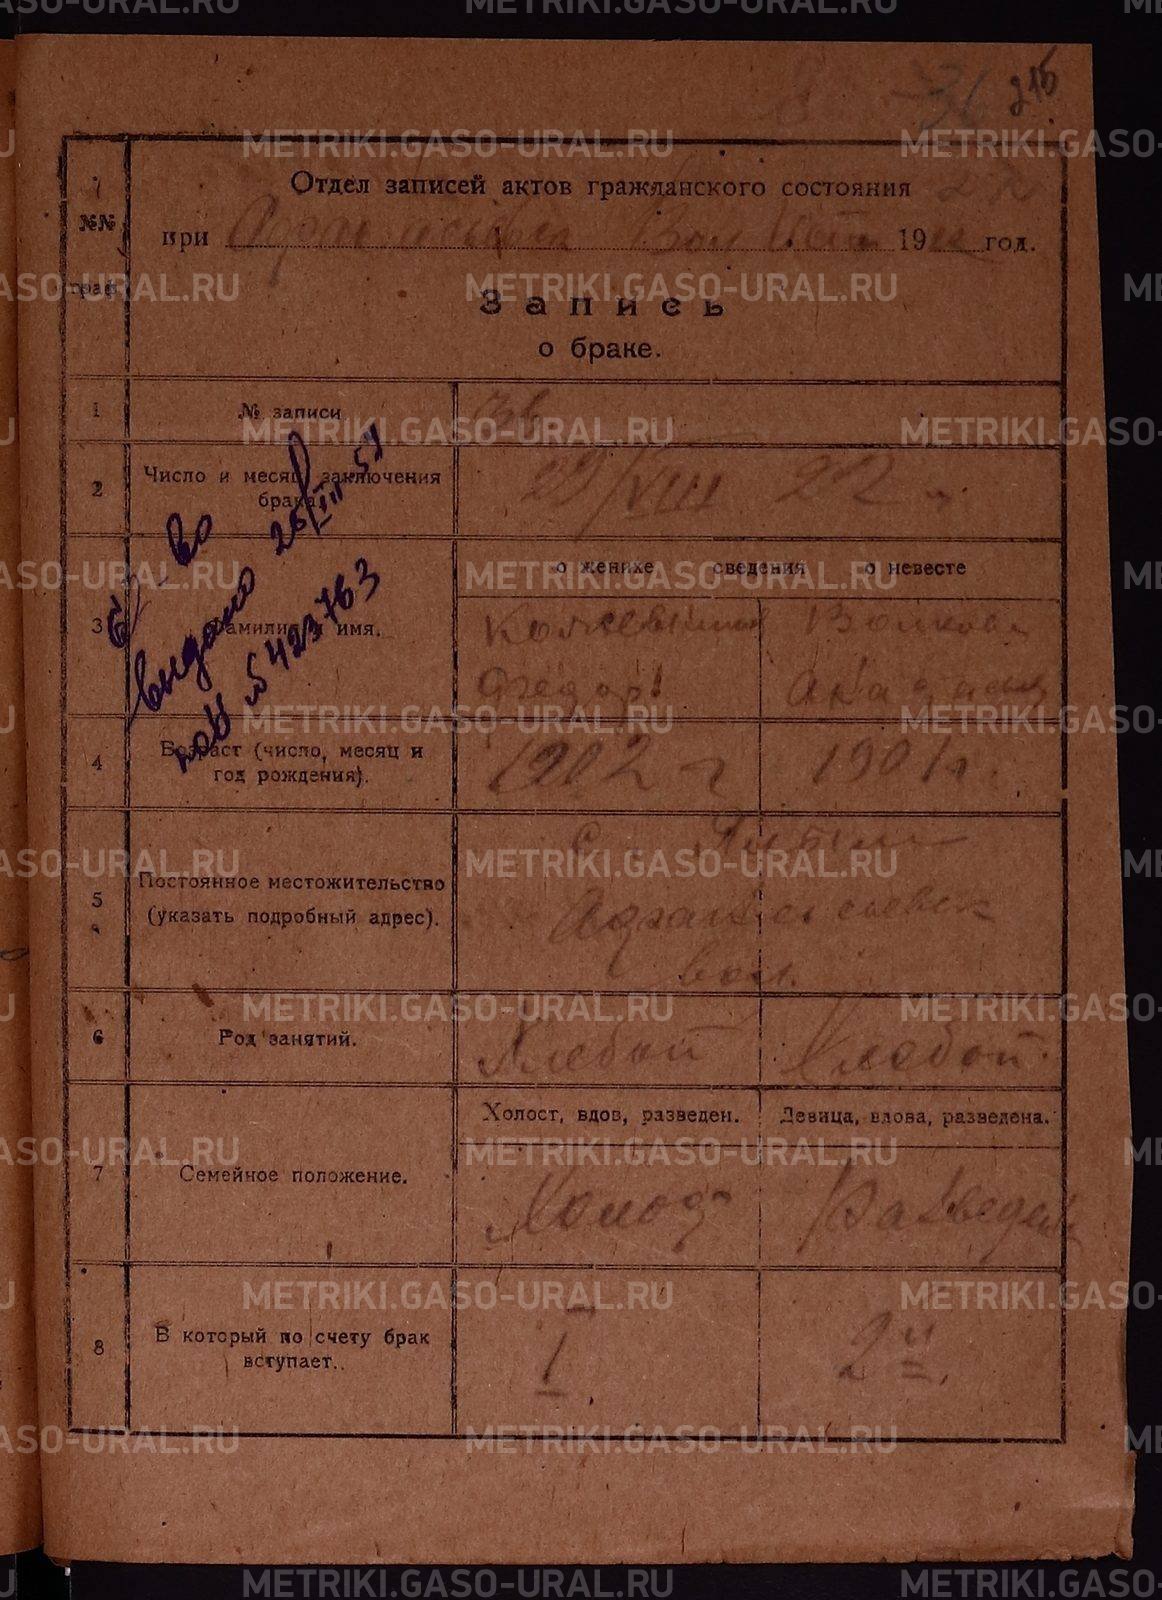 215
36
Отдел записей актов гражданского состояния
№№ граф
при Вол 1922 год.
Запись
о браке.
1 № записи 36
2 Число и месяц заключения брака 29/VIII 22 г.
о женихе сведения о невесте
3 Фамилия и имя.
Волкова
Федор
4 Возраст (число, месяц и год рождения). 1902 г 1901 г.
5 Постоянное местожительство (указать подробный адрес).
с.
вол.
6 Род занятий. Хлебоп Хлебоп.
Холост, вдов, разведен. Девица, вдова, разведена.
7 Семейное положение. Холост Разведен
8 В который по счету брак вступает. I 2й
С-во
выдано 26/III 51
№ 423763
METRIKI.GASO-URAL.RU